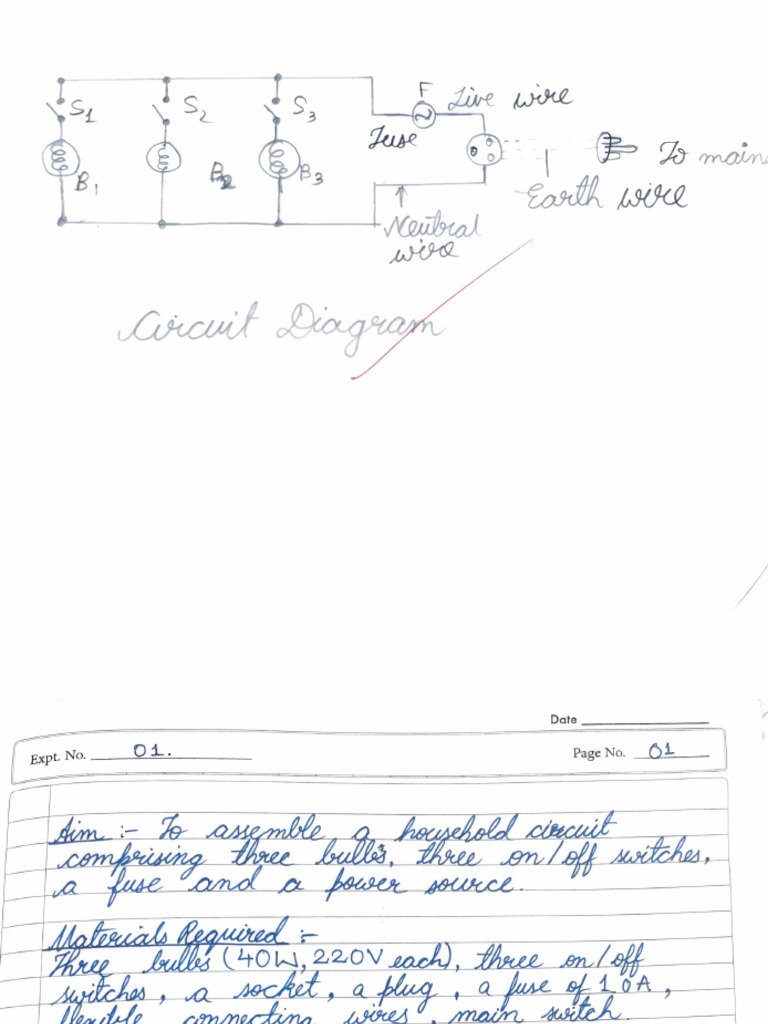 S1 S2 S3 F Live wire
Fuse
To main
B1 B2 B3
Earth wire
Neutral
wire
Circuit Diagram
Date
Expt. No. 01. Page No. 01
Aim :- To assemble a household circuit
comprising three bulbs, three on/off switches,
a fuse and a power source.
Materials Required :-
Three bulbs (40W, 220V each), three on/off
switches, a socket, a plug, a fuse of 1.0A,
flexible connecting wires, main switch.